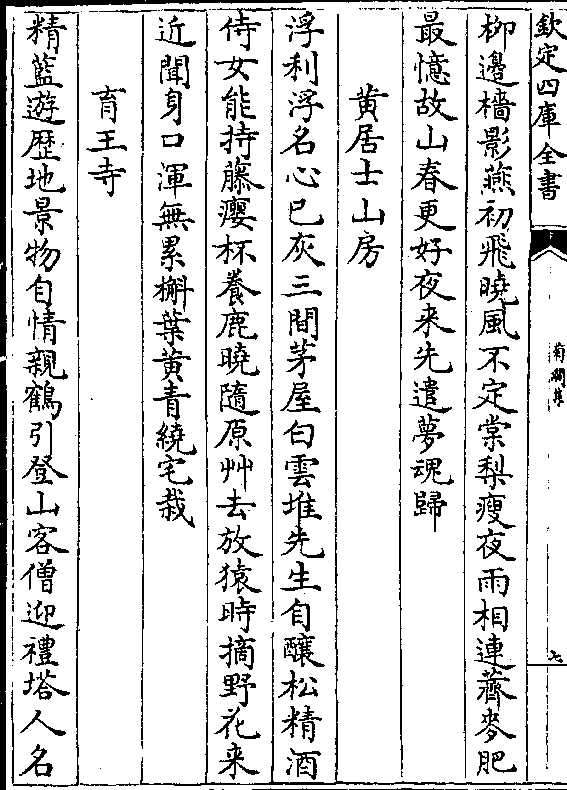 欽定四庫全書
菊磵集
七
柳邊檣影燕初飛曉風不定棠梨瘦夜雨相連薺麥肥
最憶故山春更好夜來先遣夢魂歸
黄居士山房
浮利浮名心已灰三間茅屋白雲堆先生自釀松精酒
侍女能持藤癭杯養鹿曉隨原艸去放猿時摘野花来
近聞身口渾無累槲葉黄青繞宅栽
育王寺
精藍遊歴地景物自情親鶴引登山客僧迎禮塔人名